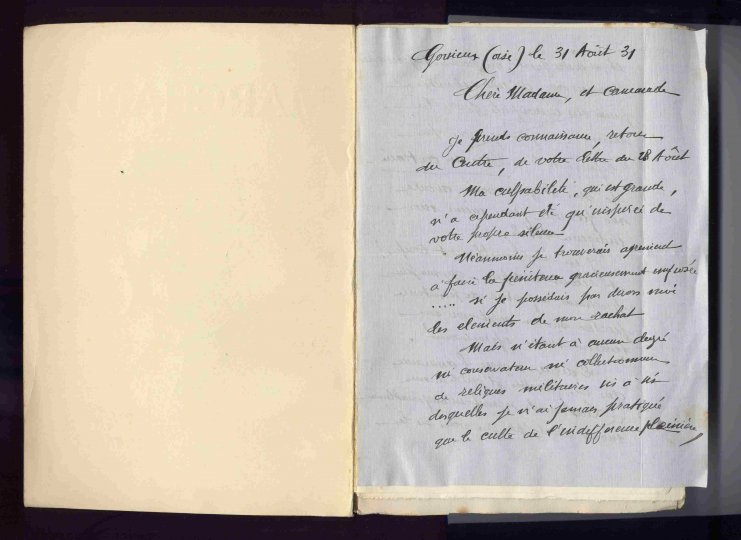 (oise) le 31 Août 31
Chère Madame, et camarade
je prends connaissance, retour
du Centre, de votre lettre du 28 Août
Ma culpabilité, qui est grande,
n'a cependant été qu'inspirée de
votre propre silence
Néanmoins je trouverais agrément
à faire la pénitence gracieusement imposée
..... si je possédais par devers moi
les elements de mon rachat
Mais n'étant à aucun degré
ni conservateur ni collectionneur
de reliques militaires vis à vis
desquelles je n'ai jamais pratiqué
que le culte de l'indifférence plénière,